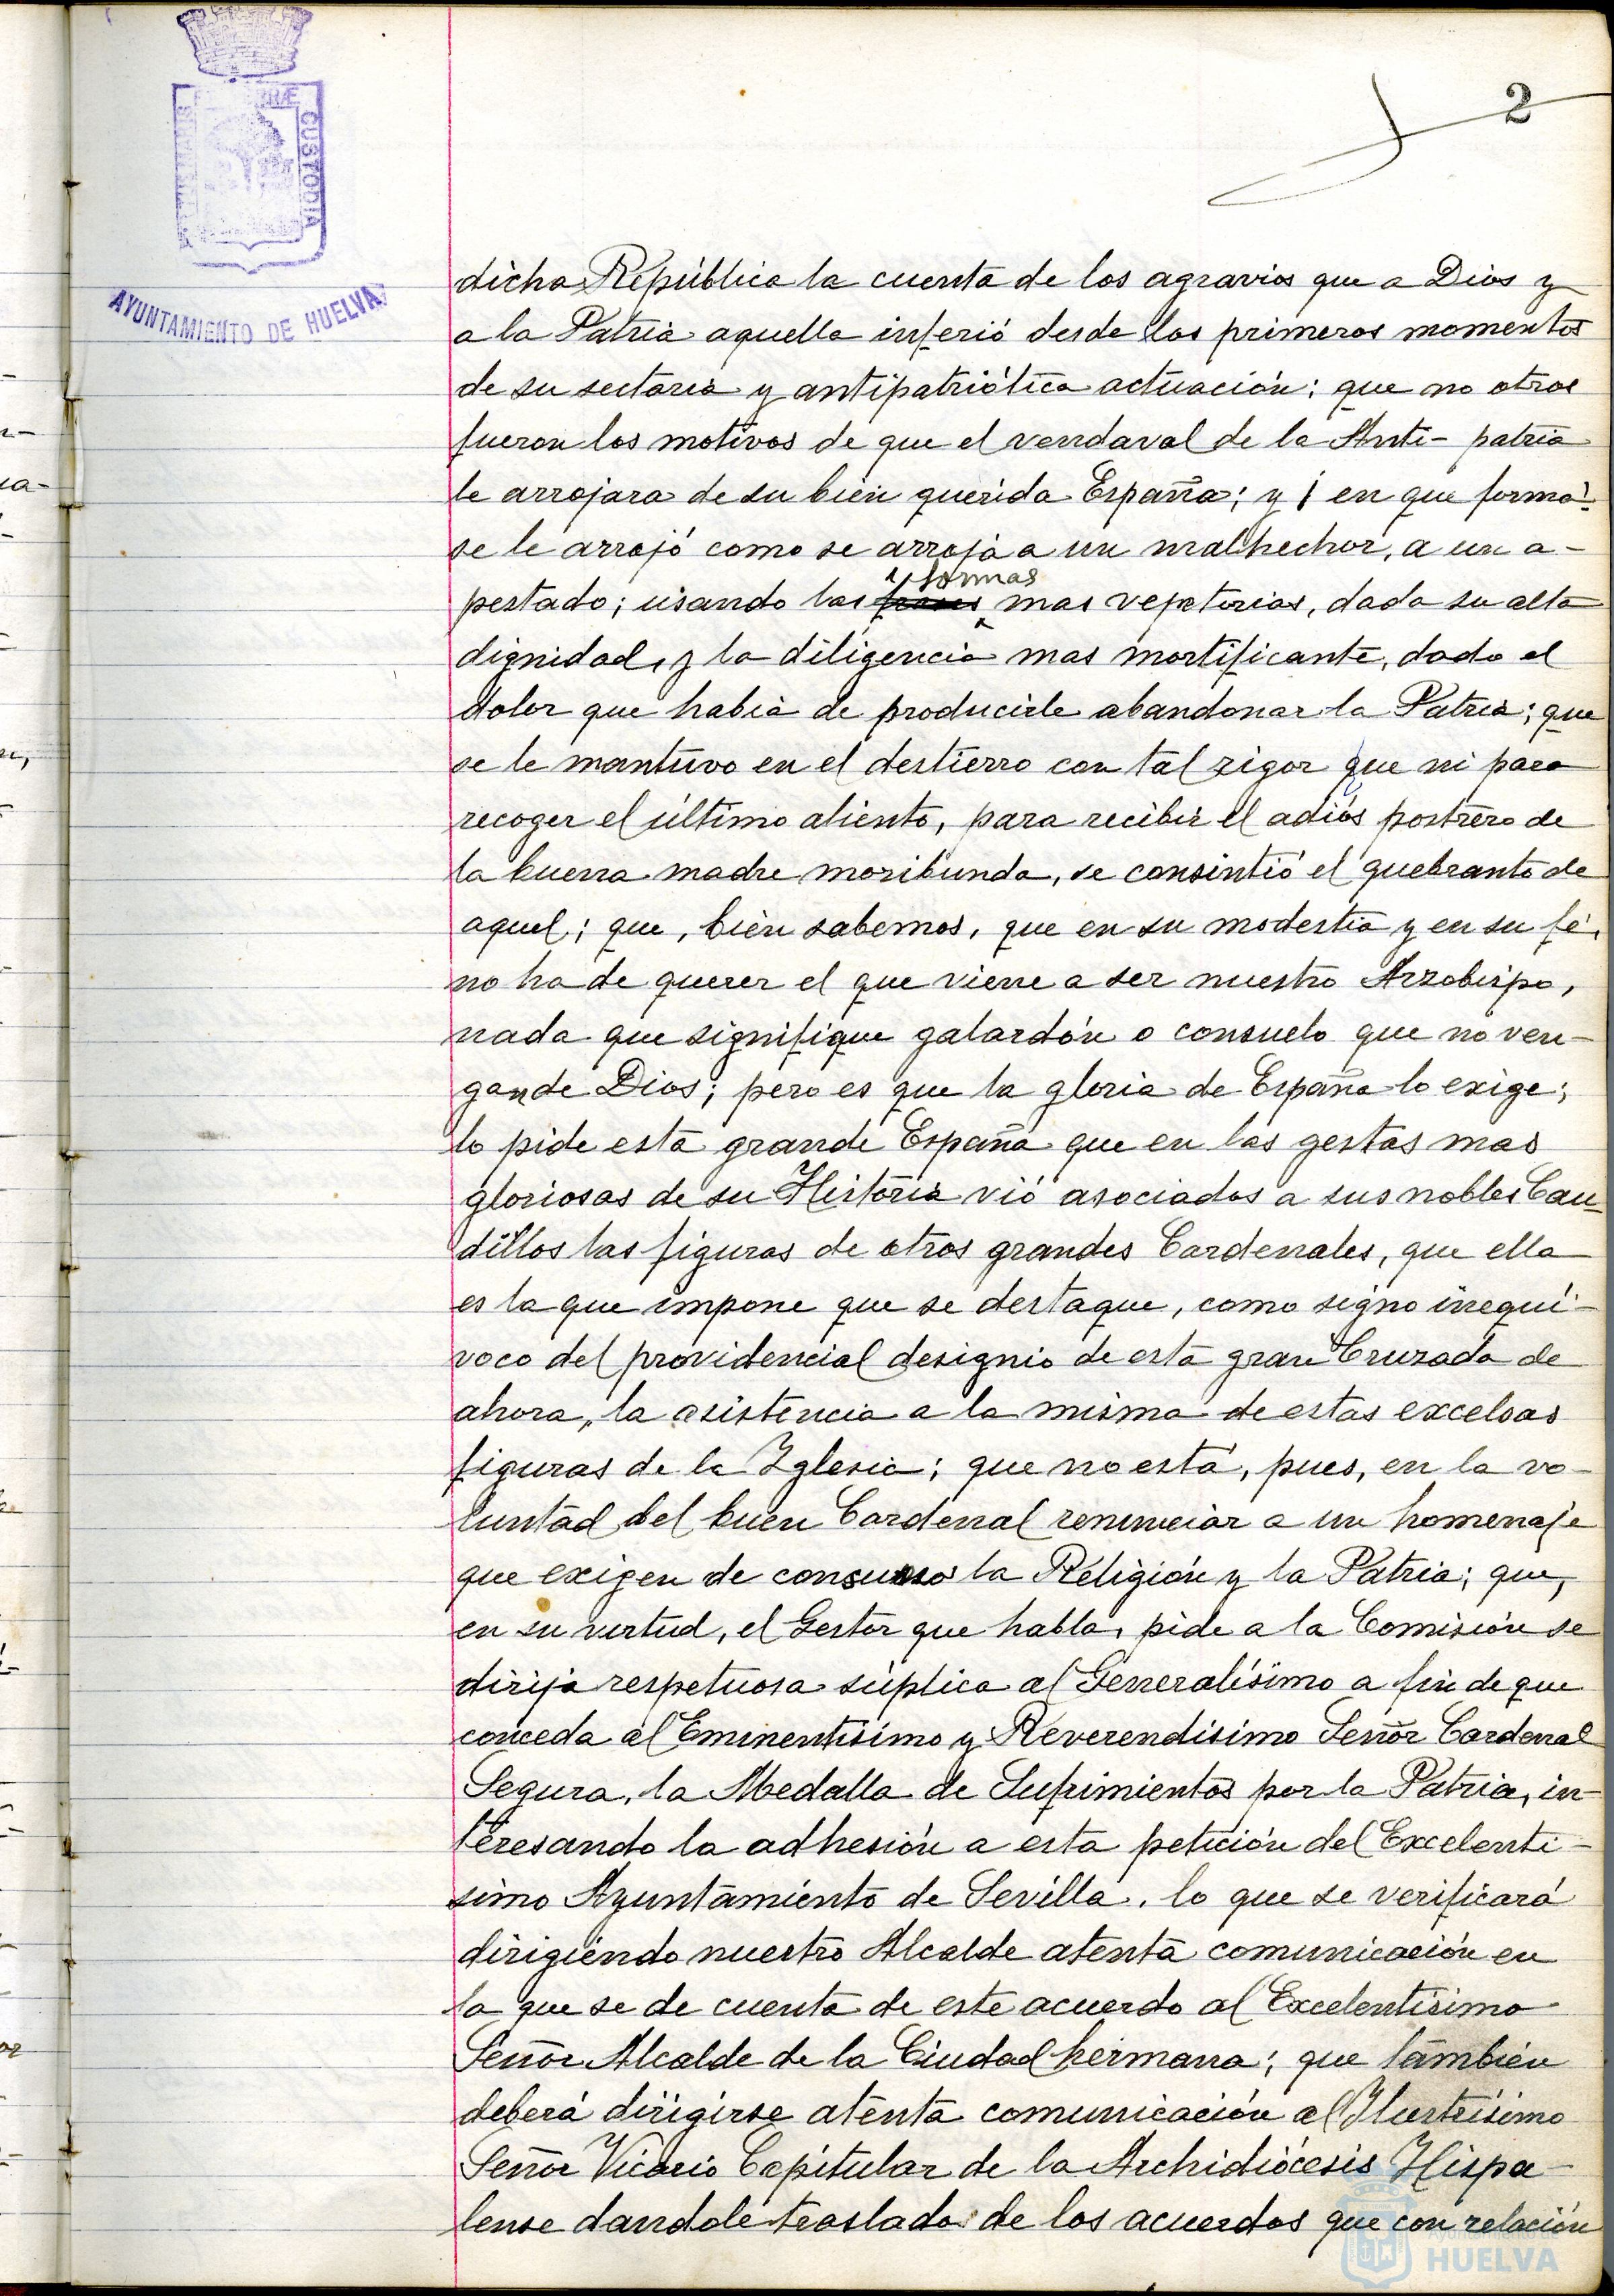 2
PORTUS MARIS ET TERRAE CUSTODIA
AYUNTAMIENTO DE HUELVA
dicha República la cuenta de los agravios que a Dios y
a la Patria aquella inferió desde los primeros momentos
de su sectaria y antipatriótica actuación; que no otros
fueron los motivos de que el vendaval de la Anti- patria
le arrojara de su bien querida España; y ¡ en que forma!
se le arrojó como se arroja a un malhechor, a un a-
pestado; usando las formas mas vejatorias, dada su alta
dignidad, y la diligencia mas mortificante, dado el
dolor que había de producirle abandonar la Patria; que
se le mantuvo en el destierro con tal rigor que ni para
recoger el último aliento, para recibir el adiós postrero de
la buena madre moribunda, se consintió el quebranto de
aquel; que, bien sabemos, que en su modestia y en su fé,
no ha de querer el que viene a ser nuestro Arzobispo,
nada que signifique galardón o consuelo que no ven-
gan de Dios; pero es que la gloria de España lo exige;
lo pide esta grande España que en las gestas mas
gloriosas de su Historia vió asociados a sus nobles Cau-
dillos las figuras de otros grandes Cardenales, que ella
es la que impone que se destaque, como signo inequí-
voco del providencial designio de esta gran Cruzada de
ahora, la asistencia a la misma de estas excelsas
figuras de la Iglesia; que no está, pues, en la vo-
luntad del buen Cardenal renunciar a un homenaje
que exigen de consuno la Religión y la Patria; que,
en su virtud, el Gestor que habla, pide a la Comisión se
dirija respetuosa súplica al Generalísimo a fin de que
conceda al Eminentísimo y Reverendísimo Señor Cardenal
Segura, la Medalla de Sufrimientos por la Patria, in-
teresando la adhesión a esta petición del Excelentí-
simo Ayuntamiento de Sevilla, lo que se verificará
dirigiendo nuestro Alcalde atenta comunicación en
la que se de cuenta de este acuerdo al Excelentísimo
Señor Alcalde de la Ciudad hermana; que también
deberá dirigirse atenta comunicación al Ilustrísimo
Señor Vicario Capitular de la Archidiócesis Hispa-
lense dandole traslado de los acuerdos que con relación
HUELVA